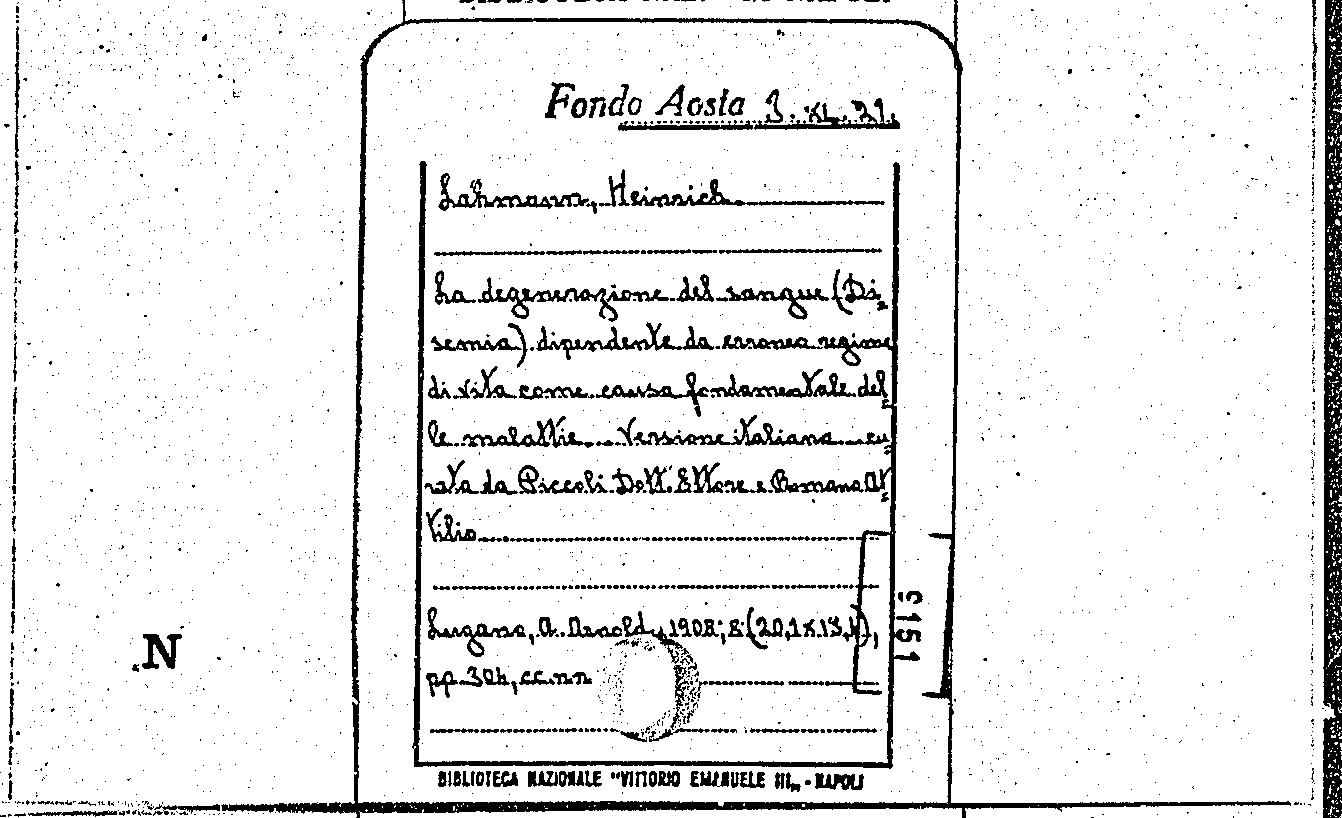 Fondo Aosta 3. XL. 21.
Lahmann, Heinrich.
La degenerazione del sangue (Di=
semia) dipendente da erroneo regime
di vita come causa fondamentale del=
le malattie. Versione italiana cu=
rata da Piccoli Dott. Ettore e Romano At=
tilio.
Lugano, A. Arnold, 1908; 8 (20,1x13,4),
pp. 304, cc. nn
5151
N
BIBLIOTECA NAZIONALE "VITTORIO EMANUELE III„ - NAPOLI